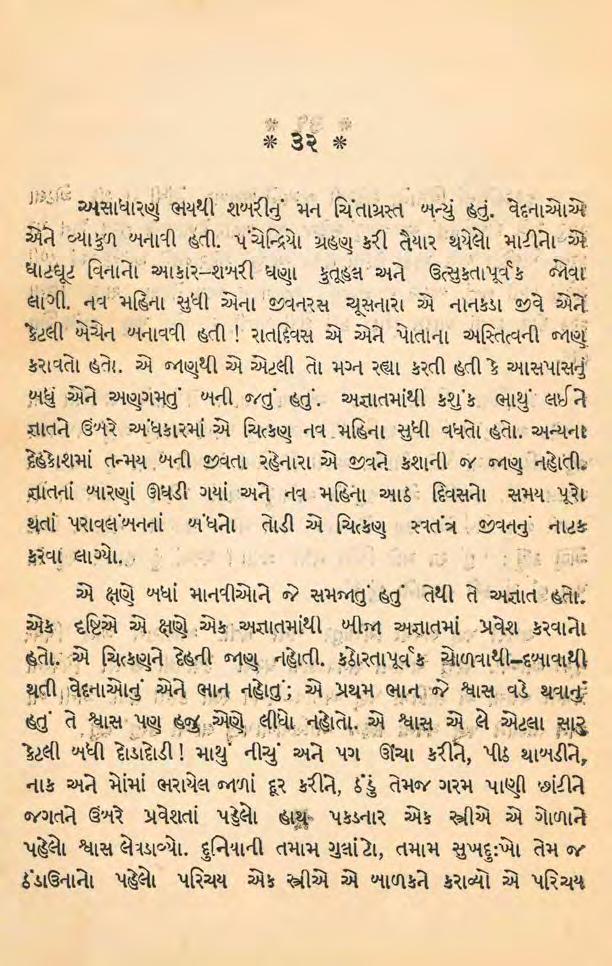 * ૩૨ *
અસાધારણ ભયથી શબરીનું મન ચિંતાગ્રસ્ત બન્યું હતું. વેદનાઓએ
એને વ્યાકુળ બનાવી હતી. પંચેન્દ્રિયો ગ્રહણ કરી તૈયાર થયેલો માટીનો એ
ઘાટઘૂટ વિનાનો આકાર–શબરી ઘણા કુતૂહલ અને ઉત્સુકતાપૂર્વક જોવા
લાગી. નવ મહિના સુધી એના જીવનરસ ચૂસનારા એ નાનકડા જીવે એને
કેટલી બેચેન બનાવવી હતી ! રાતદિવસ એ એને પોતાના અસ્તિત્વની જાણ
કરાવતો હતો. એ જાણથી એ એટલી તો મગ્ન રહ્યા કરતી હતી કે આસપાસનું
બધું એને અણગમતું બની જતું હતું. અજ્ઞાતમાંથી કશુંક ભાથું લઈને
જ્ઞાતને ઉંબરે અંધકારમાં એ ચિત્કણ નવ મહિના સુધી વધતો હતો. અન્યના
દેહકોશમાં તન્મય બની જીવતા રહેનારા એ જીવને કશાની જ જાણ નહોતી.
જ્ઞાતનાં બારણાં ઊઘડી ગયાં અને નવ મહિના આઠ દિવસનો સમય પૂરો
થતાં પરાવલંબનનાં બંધનો તોડી એ ચિત્કણ સ્વતંત્ર જીવનનું નાટક
કરવા લાગ્યો.
એ ક્ષણે બધાં માનવીઓને જે સમજાતું હતું તેથી તે અજ્ઞાત હતો.
એક દૃષ્ટિએ એ ક્ષણે એક અજ્ઞાતમાંથી બીજા અજ્ઞાતમાં પ્રવેશ કરવાનો
હતો. એ ચિત્કણને દેહની જાણ નહોતી. કઠોરતાપૂર્વક ચોળવાથી–દબાવાથી
થતી વેદનાઓનું એને ભાન નહોતું; એ પ્રથમ ભાન જે શ્વાસ વડે થવાનું
હતું તે શ્વાસ પણ હજુ એણે લીધો નહોતો. એ શ્વાસ એ લે એટલા સારુ
કેટલી બધી દોડાદોડી ! માથું નીચું અને પગ ઊંચા કરીને, પીઠ થાબડીને,
નાક અને મોંમાં ભરાયેલ જાળાં દૂર કરીને, ઠંડું તેમજ ગરમ પાણી છાંટીને
જગતને ઉંબરે પ્રવેશતાં પહેલો હાથ પકડનાર એક સ્ત્રીએ એ ગોળાને
પહેલો શ્વાસ લેવડાવ્યો. દુનિયાની તમામ ગુલાંટો, તમામ સુખદુઃખો તેમ જ
ઠંડાઉનાનો પહેલો પરિચય એક સ્ત્રીએ એ બાળકને કરાવ્યો એ પરિચય